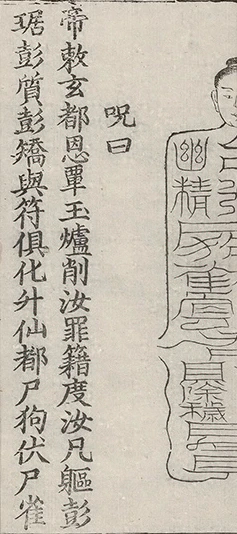 呪曰
帝敕玄都恩覃玉爐削汝罪籍度汝凡軀彭
琚彭質彭矯與符俱化升仙都尸狗伏尸雀
幽精
除穢